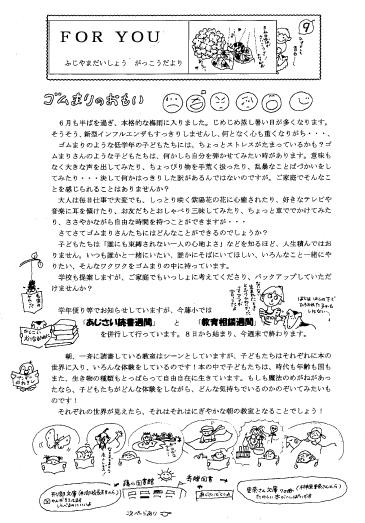 FOR YOU
ふじやまだいしょう　がっこうだより
9
ゴムまりのおもい
６月も半ばを過ぎ、本格的な梅雨に入りました。じめじめ蒸し暑い日が多くなります。
そうそう、新型インフルエンザもすっきりしませんし、何となく心も重くなりがち・・・、
ゴムまりのような低学年の子どもたちには、ちょっとストレスがたまっているかも？ゴ
ムまりさんのような子どもたちは、何かしら自分を弾ませてみたい時があります。意味も
なく大きな声を出してみたり、ちょっぴり物を手荒く扱ったり、乱暴なことばづかいをし
てみたり・・・決して何かはっきりした訳があるんではないのですが。ご家庭でそんなこ
とを感じられることはありませんか？
大人は毎日仕事で大変でも、しっとり咲く紫陽花の花に心癒されたり、好きなテレビや
音楽に耳を傾けたり、お友だちとおしゃべり三昧してみたり、ちょっと車ででかけてみた
り、ささやかながら自由な時間を持つことができますが・・・
さてさてゴムまりさんたちにはどんなことができるのでしょうか？
子どもたちは「誰にも束縛されない一人の心地よさ」などを知るほど、人生積んではお
りません。いつも誰かと一緒にいたい、誰かにそばにいてほしい、いろんなこと一緒にや
りたい、そんなワクワクをゴムまりの中に持っています。
学校も提案しますが、ご家庭でもいっしょに考えてくださり、バックアップしていただ
けませんか？
学年便り等でお知らせしていますが、今藤小では
「あじさい読書週間」　と　「教育相談週間」
を併行して行っています。８日から始まり、今週末で終わります。
朝、一斉に読書している教室はシーンとしていますが、子どもたちはそれぞれに本の
世界に入り、いろんな体験をしているのです！本の中で子どもたちは、時代も年齢も国も
また、生き物の種類もとっぱらって自由自在に生きています。もしも魔法のめがねがあっ
たなら、子どもたちがどんな体験をしながら、どんな気持ちでいるのかのぞいてみたいも
のです！
それぞれの世界が見えたら、それはそれはにぎやかな朝の教室となることでしょう！